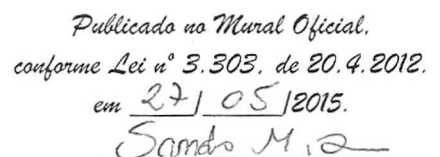 Publicado no Mural Oficial,
conforme Lei nº 3.303, de 20.4.2012.
em 27/ 05 /2015.